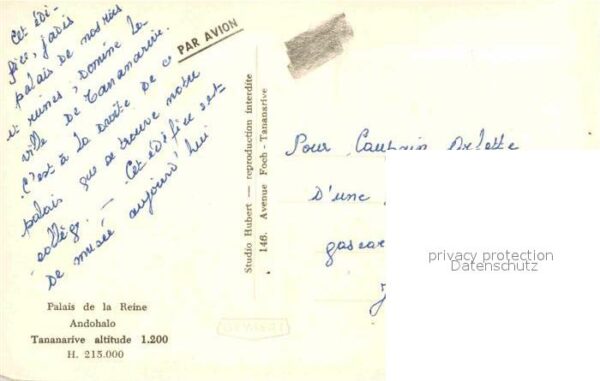 Cet édi-
fice, jadis
palais de nos rois
et reines, domine la
ville de Tananarive.
C'est à la droite de ce
palais que se trouve notre
collège. — Cet édifice sert
de musée aujourd'hui
PAR AVION
Studio Hubert — reproduction interdite
146. Avenue Foch - Tananarive
Pour Arlette
D'une
gascar
privacy protection
Datenschutz
Palais de la Reine
Andohalo
Tananarive altitude 1.200
H. 215.000